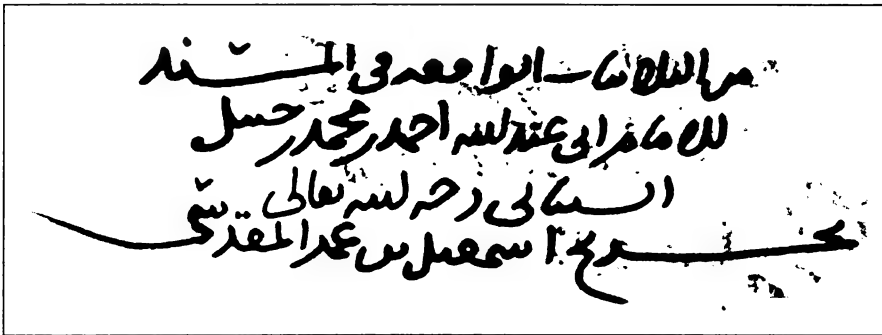 من الثلاثيات الواقعه في المسند
للامام ابي عبد الله احمد بن محمد بن حنبل
الشيباني رحمه الله تعالى
تخريج اسمعيل بن عمر المقدسي